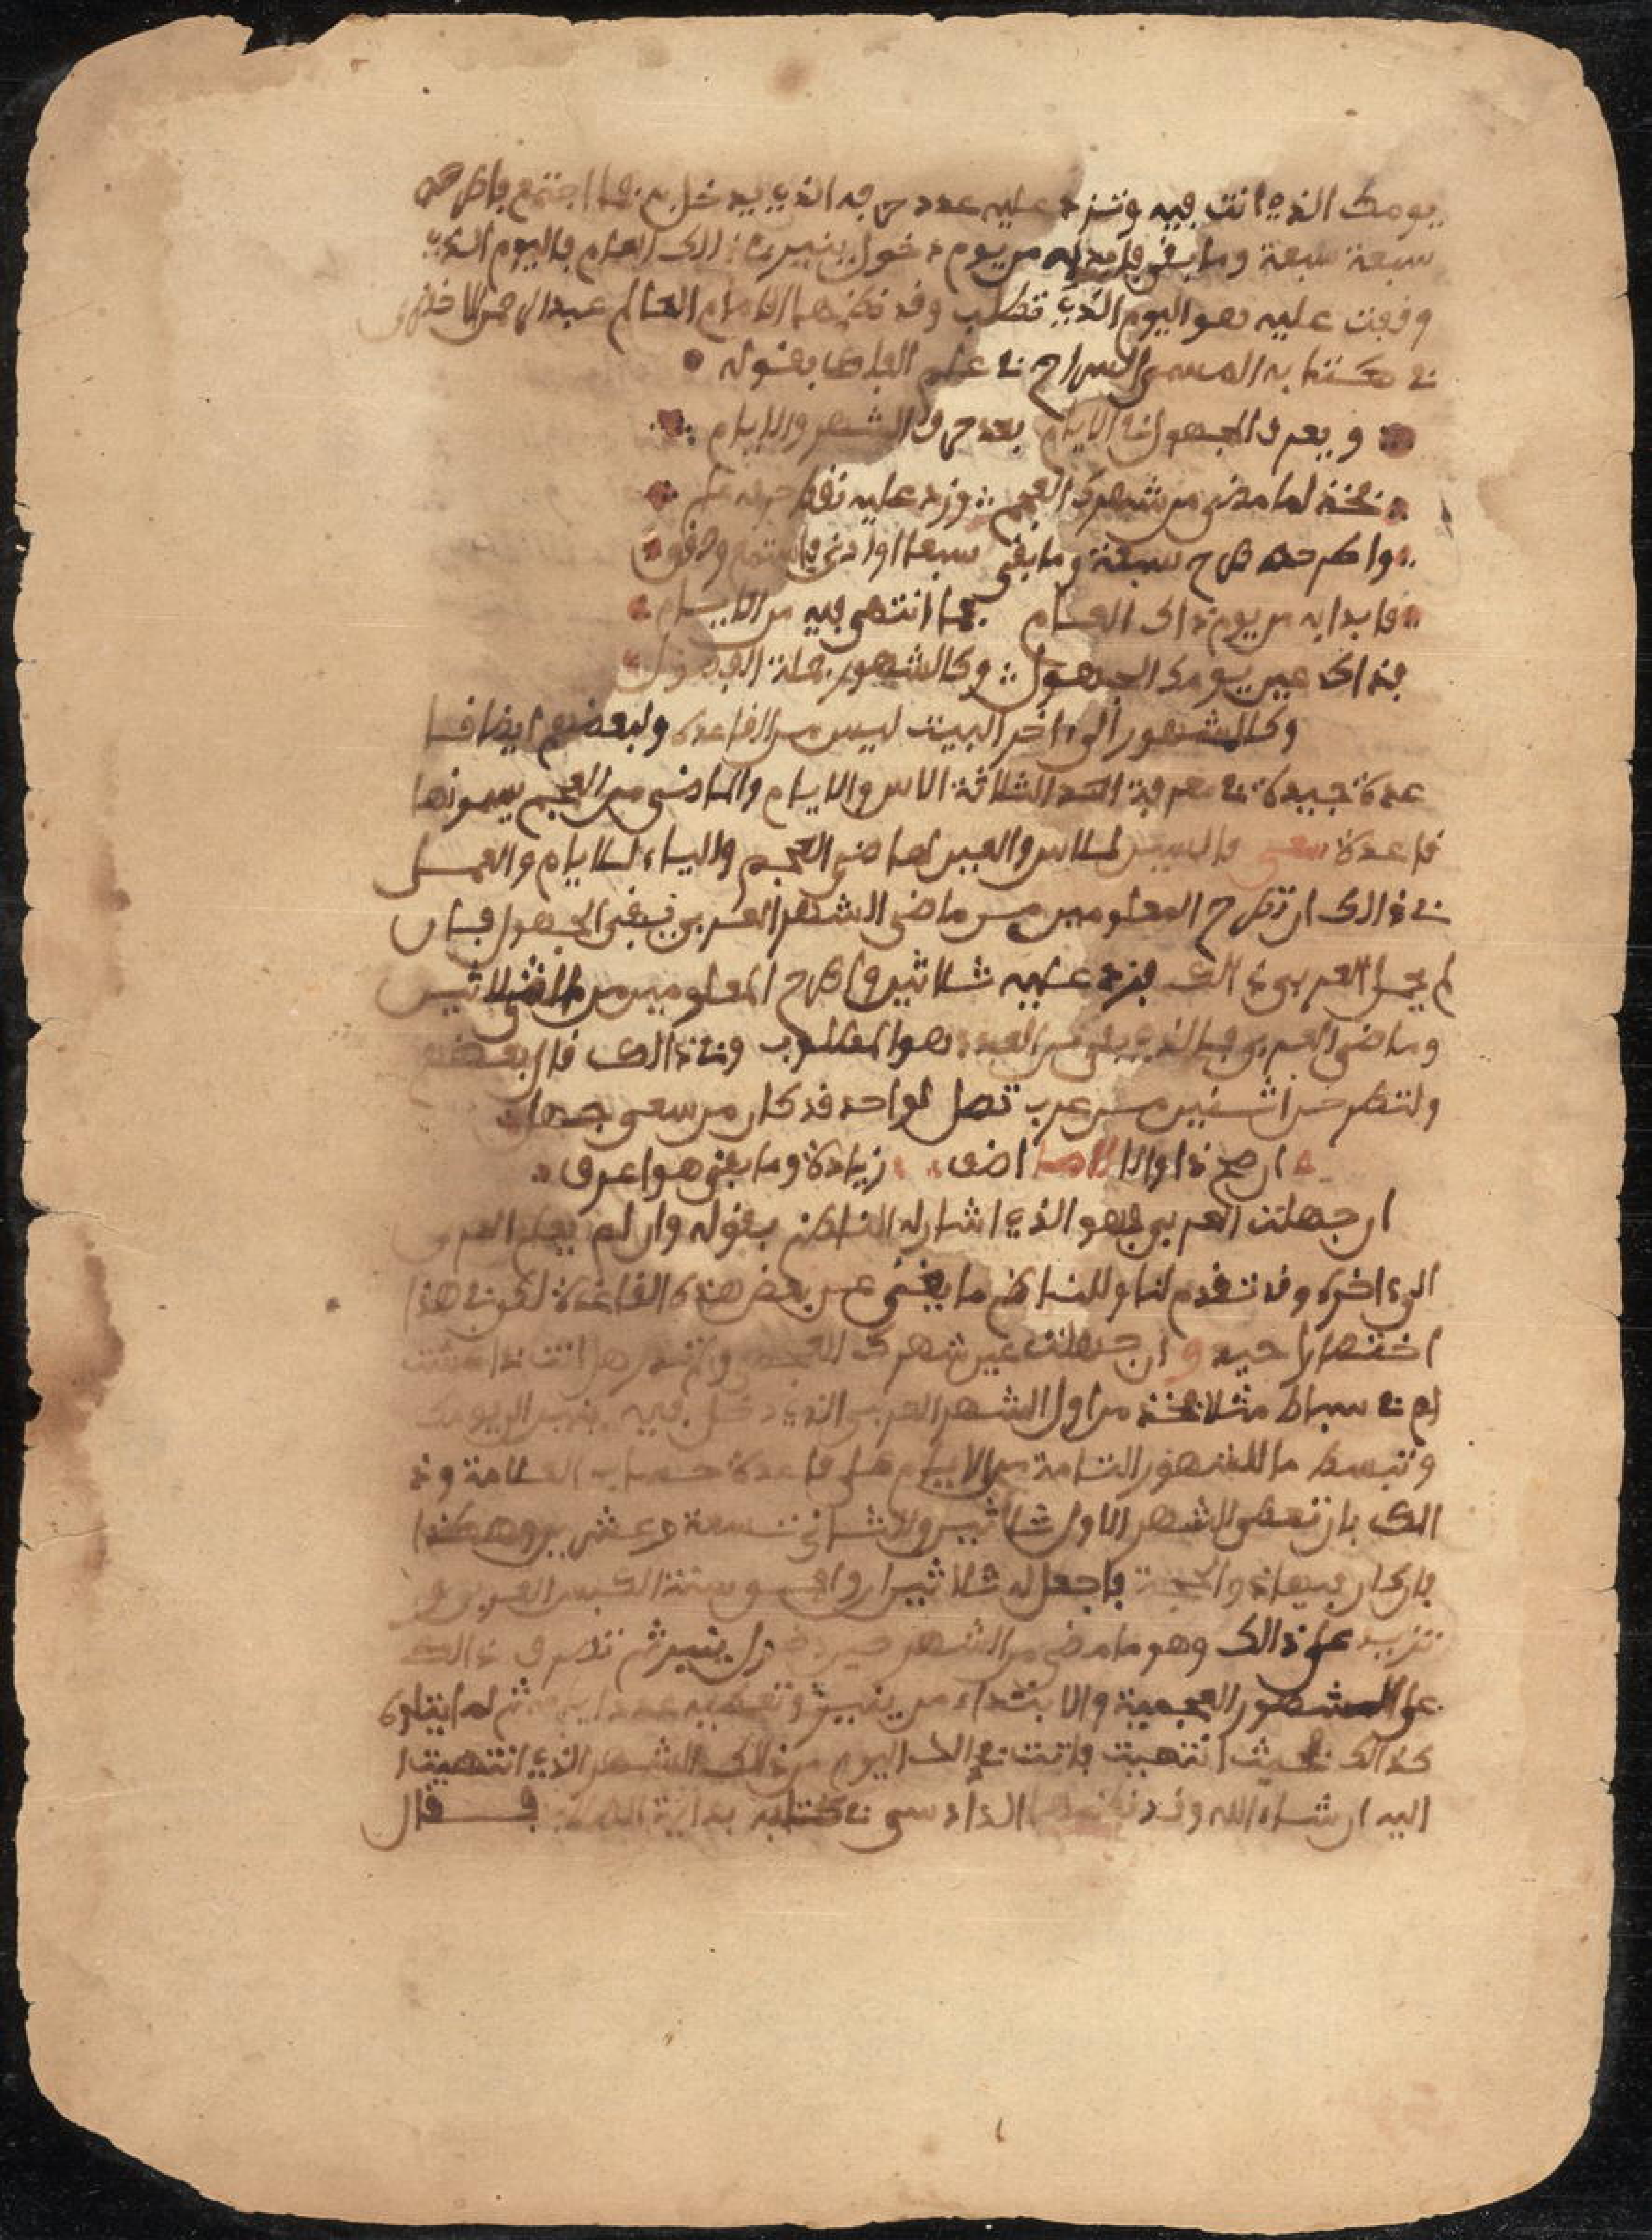 يومك الذي انت فيه وتزد عليه عدد حرفه الذي يدخل به فما اجتمع فاطرحه
سبعة سبعة وما بقي فابدا به من يوم دخول ينير ذالك العام فاليوم الذي
وقفت عليه هو اليوم الذي تطلب وقد نظمها الامام العالم عبد الرحمن الاخضري
في كتابه المسمى السراج في علم الفلك بقوله
ويعرف المجهول في الايام بعد حرف الشهر والايام
فخذ لما مضى من شهرك العجم وزد عليه نقط حرفه علم
واطرحه طرح سبعة وما بقي سبعا او ادنى فاستمع وحقق
فابدا به من يوم ذاك العام فما انتهى فيه من الايام
فذاك عين يومك المجهول وكالشهور جملة الفصول
وكالشهور الى اخر البيت ليس من القاعدة ولبعضهم ايضا قا
عدة جيدة في معرفة احد الثلاثة الاس والايام والماضي من العجم يسمونها
قاعدة سعي فالسين للاس والعين لماضي العجم والياء للايام والعمل
في ذالك ان تطرح المعلومين من ماضي الشهر العربي فيبقى المجهول فان
لم يحمل العربي ذالك فزد عليه ثلاثين واطرح المعلومين من الثلاثين
وماضي العربي فالذي بقي من العدد هو المطلوب وفي ذالك قال بعضهم
ولتطرحن اثنين من عرب تصل لواحد قد كان من سعي جهل
ان صح ذا والا لامـا اضف زيادة وما بقي هو اعرف
ان جهلت العربي فهو الذي اشار له الناظم بقوله وان لم يعلم العربي
الى اخره وقد تقدم لنا وللناظم ما يغني عن بعض هذه القاعدة لكن في هذا
اختصارا جيد و ان جهلت عين شهرك العجمي ولم تدر هل انت في غشت
ام في سباط مثلا فخذ من اول الشهر العربي الذي دخل فيه ينير الى يومك
وتبسط ما للشهور التامة من الايام على قاعدة حساب العلامة وذ
الك بان تعطي للشهر الاول ثلاثين وللثاني تسعة وعشرين وهكذا
فان كان فيها ذو الحجة فاجعل له ثلاثين ان وافق سنة الكبس العربي و
تزيد على ذالك وهو ما مضى من الشهر حين دخول ينير ثم تصرف ذالك
على الشهور العجمية والابتداء من ينير وتعطيه عدد ايامه ثم لما يتلوه
كذالك فحيث انتهيت فانت في ذالك اليوم من ذالك الشهر الذي انتهيت
اليه ان شاء الله وقد نظمها الدادسي في كتابه بداية الطلاب فقال